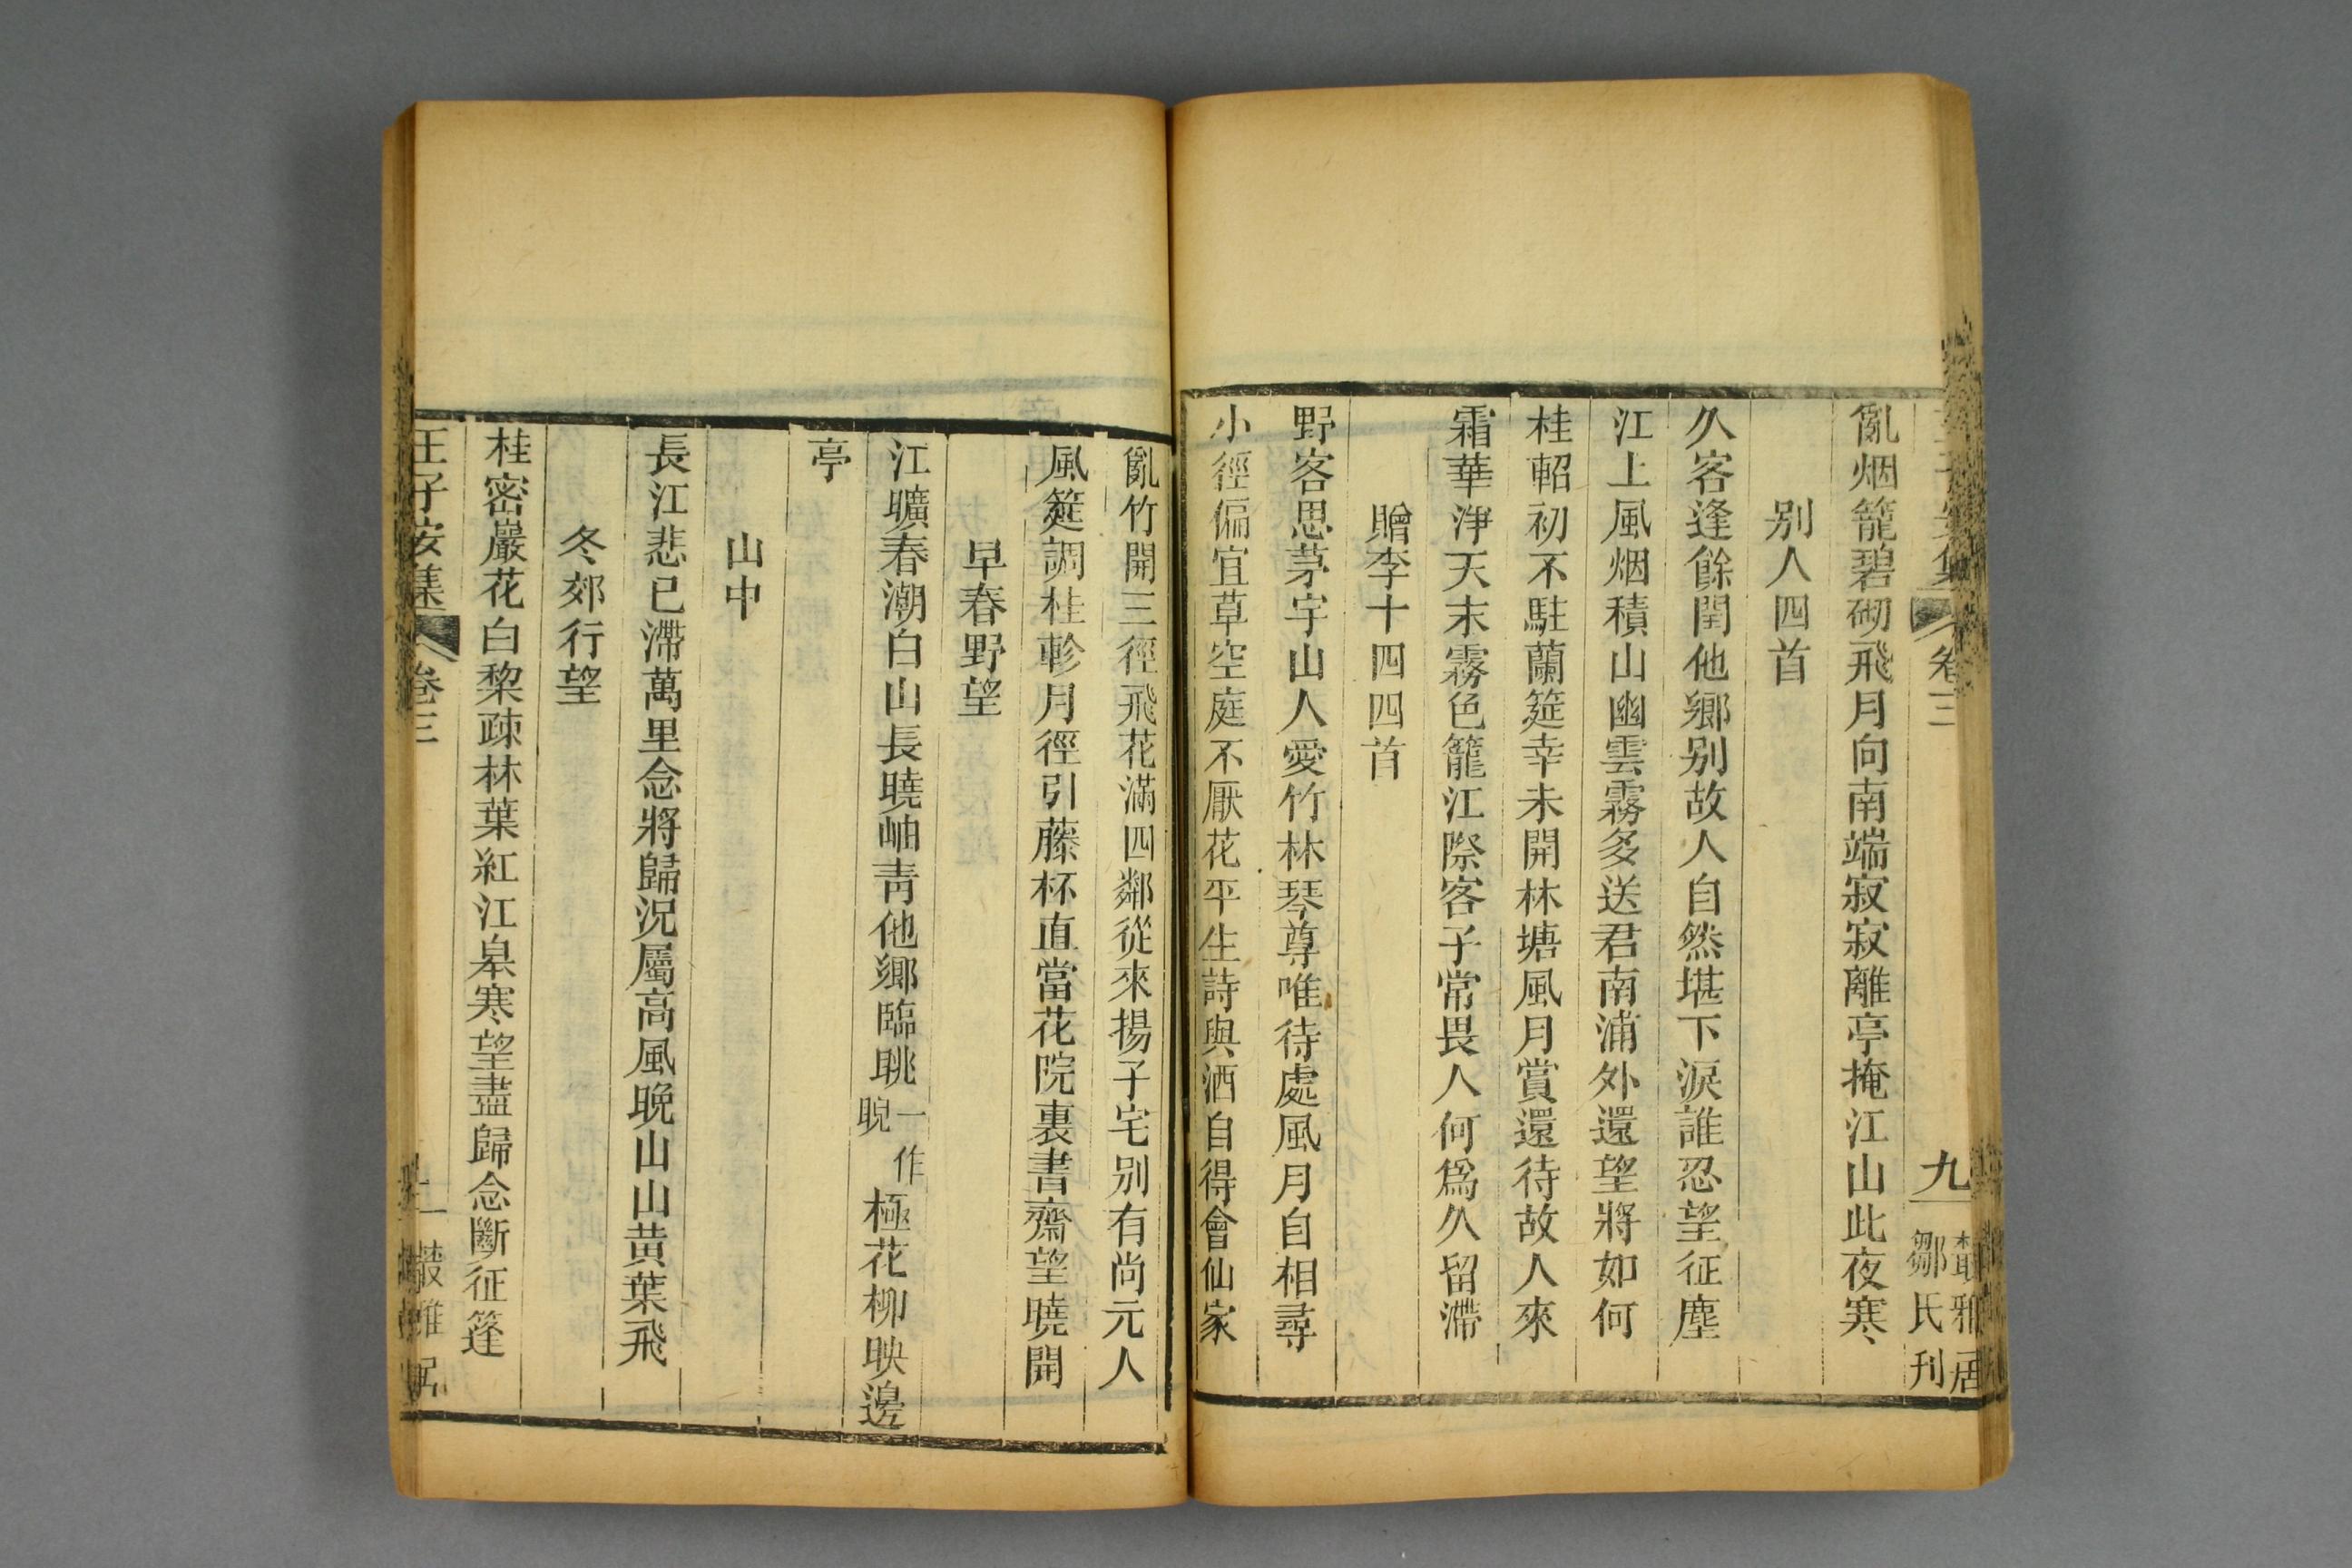 卷三
九
叢雅居
鄒氏刊
亂烟籠碧砌飛月向南端寂寂離亭掩江山此夜寒
别人四首
久客逢餘閏他鄉别故人自然堪下淚誰忍望征塵
江上風烟積山幽雲霧多送君南浦外還望將如何
桂軺初不駐蘭筵幸未開林塘風月賞還待故人來
霜華淨天末霧色籠江際客子常畏人何爲久留滯
贈李十四四首
野客思茅宇山人愛竹林琴尊唯待處風月自相尋
小徑偏宜草空庭不厭花平生詩與酒自得會仙家
亂竹開三徑飛花滿四鄰從來揚子宅别有尚元人
風筵調桂軫月徑引藤杯直當花院裏書齋望曉開
早春野望
江曠春潮白山長曉岫青他鄉臨眺一作睨極花柳映邊
亭
山中
長江悲已滯萬里念將歸況屬高風晚山山黄葉飛
冬郊行望
桂密巖花白棃疎林葉紅江臯寒望盡歸念斷征篷
王子安集
卷三
叢雅居